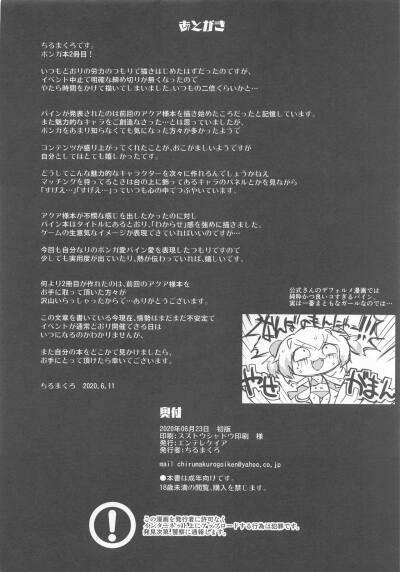 あとがき
ちるまくろです。
ボンガ本2冊目！
いつもどおりの労力のつもりで描きはじめたはずだったのですが、
イベント中止で明確な締め切りが無くなったので
やたら時間をかけて描いてしまいました、いつもの二倍くらいかと…
パインが発表されたのは前回のアクア様本を描き始めたころだったと記憶しています。
また魅力的なキャラをご創造なさった…とは思っていましたが、
ボンガをあまり知らなくても気になった方々が多かったようで
コンテンツが盛り上がってくれたことが、おこがましいようですが
自分としてはとても嬉しかったです。
どうしてこんな魅力的なキャラクターを次々に作れるんでしょうかねえ
マッチングを待ってるときは台の上に飾ってあるキャラのパネルとかを見ながら
「すげえ…」「すげえ…」っていつも心の中でつぶやいています。
アクア様本が不憫な感じを出したかったのに対し
パイン本はタイトルにあるとおり、「わからせ」感を強めに描きました。
ゲームの生意気なイメージが表現できていればいいのですが…
今回も自分なりのボンガ愛パイン愛を表現したつもりですので
少しでも実用度が出ていたり、熱が伝わっていれば、嬉しいです。
何より2冊目が作れたのは、前回のアクア様本を
お手に取って頂いた方々が
沢山いらっしゃったからで…ありがとうございます。
この文章を書いている今現在、情勢はまだまだ不安定で
イベントが通常どおり開催できる日は
いつになるのかわかりませんが、
また自分の本をどこかで見かけましたら、
お手にとって頂けたら幸いでございます。
ちるまくろ　2020.6.11
公式さんのデフォルメ漫画では
純粋かつ良いコすぎるパイン、
実は一番まともなガールなのでは…
なんぎのまんま
やせ
がまん
奥付
2020年06月23日　初版
印刷:スズトウシャドウ印刷　様
発行:エンテレケイア
発行者:ちるまくろ
mail chirumakurogoiken@yahoo.co.jp
●本書は成年向けです。
18歳未満の閲覧、購入を禁じます。
この漫画を発行者に許可なく
インターネット上にアップロードする行為は犯罪です。
発見次第、警察に通報します。